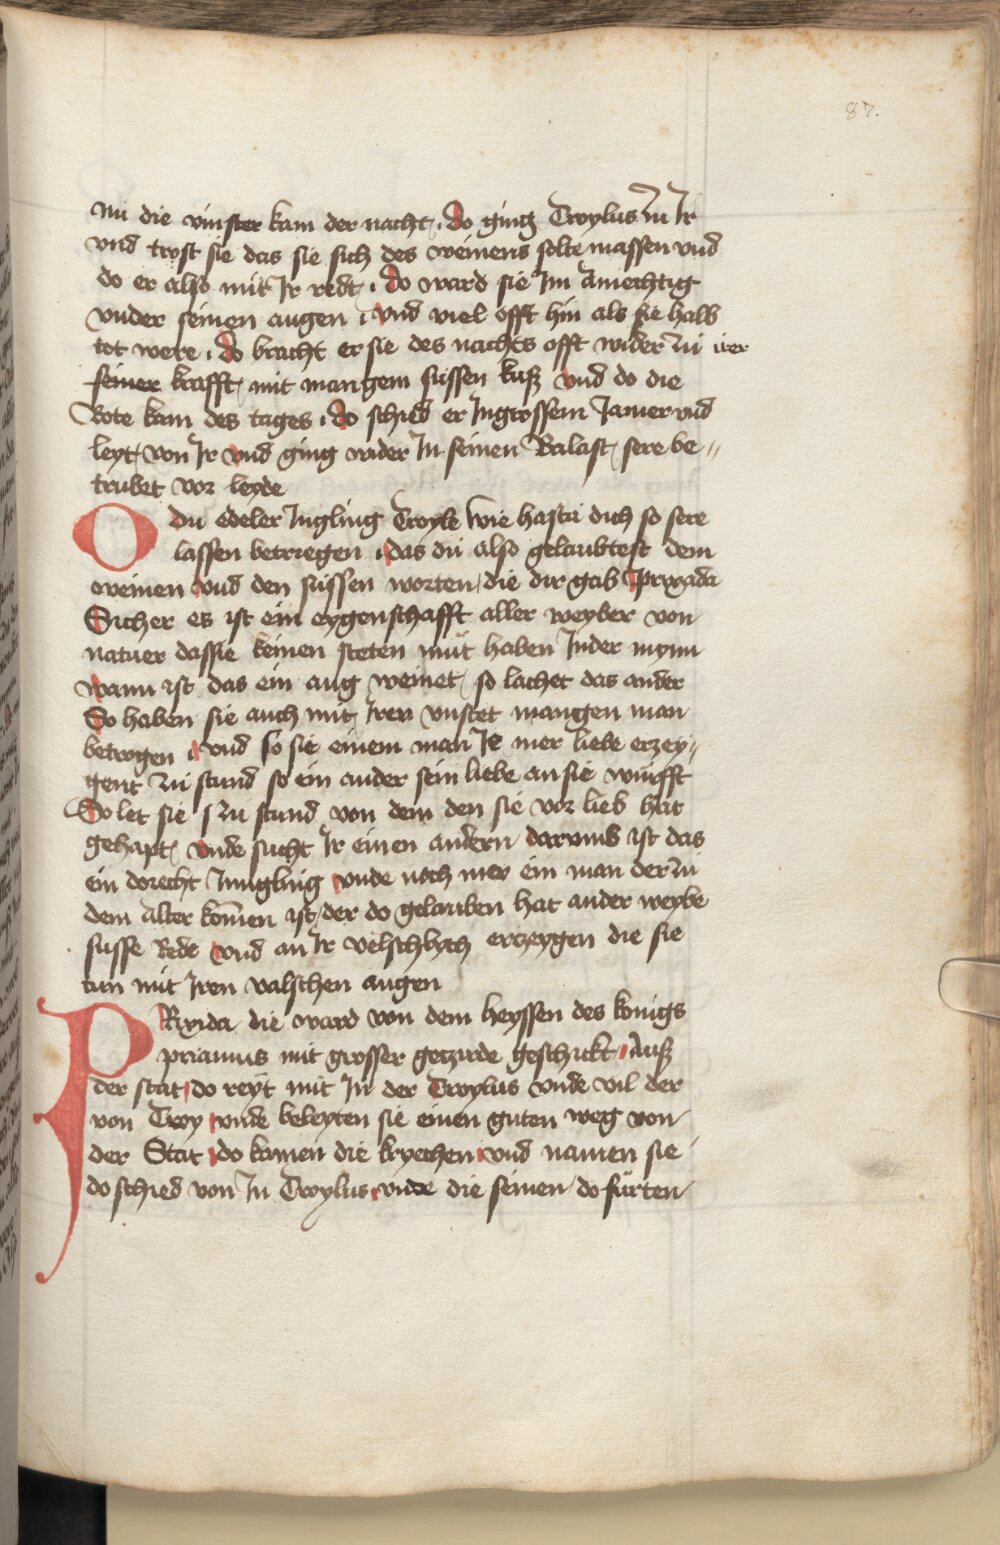 87.
nu die vinster kam der nacht, do ging Troylus zu Ir
vnd trost sie das sie sich des weinens solte massen vnd
do er also mit Ir redt, do ward sie Im amechtig
vnder seinen augen vnd viel offt hin als sie halb
tot were, do bracht er sie des nachts offt wider zu irer
seiner krafft, mit mangem süssen kusz vnd do die
Rote kam des tages, do schied er Ingrossem Jamer vnd
leyt, von Ir vnd ging wider In seinen Balast, sere be„
trubet vor leyde
O du edeler Jngling Troyle wie hastu dich so sere
lassen betriegen, das du also gelaubtest dem
weinen vnd den süssen worten, die dir gab Pryxada
Sicher es ist ein eygenschafft aller weyber von
natuer dassie keinen steten mut haben Inder mynn
wann ist das ein aug weinet, so lachet das ander
So haben sie auch mit Iren vnstet mangen man
betrogen vnd so sie einem man Ie mer liebe erzey„
gent zu stund so ein ander sein liebe an sie wurfft
So let sie zu stund von dem den sie vor lieb hat
gehapt, vnde sucht Ir einen andern darumb ist das
ein dorecht Jungling vnde noch mer ein man der zu
dem alter komen ist, der do gelauben hat ander weybe
susse Rede vnd an Ir velschlych erczeygen die sie
tun mit Iren valschen augen
PRixida die ward von dem heyssen des konigs
priamus mit grosser geczirde geschickt, Ausz
der stat, do reyt mit In der Troylus vnde vil der
von Troy vnde beleyten sie einen guten weg von
der Stat do komen die kryechen vnd namen sie
do schied von In Troylus vnde die seinen do fürten